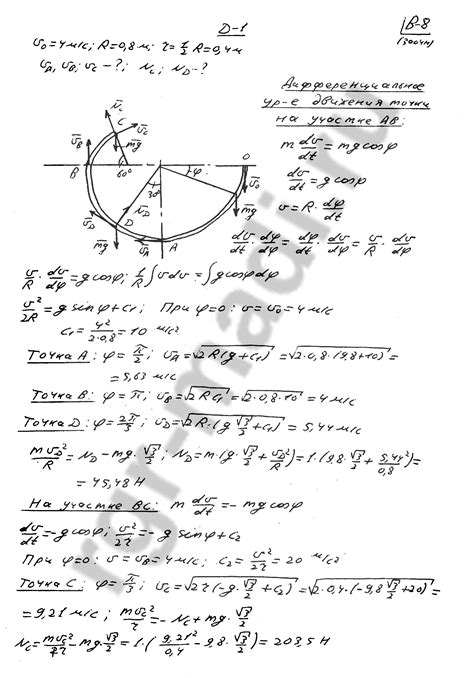 Д-1
В-8
(заочн)
v₀ = 4 м/с; R = 0,8 м; r = 1/2 R = 0,4 м
v_A, v_B, v_C - ?; N_C, N_D - ?
Дифференциальное
ур-е движения точки
на участке AB:
m dv/dt = mg cosφ
dv/dt = g cosφ
v = R · dφ/dt
dv/dt · dφ/dφ = dφ/dt · dv/dφ = v/R · dv/dφ
N̄_C
C
v̄_C
v̄_B
m̄g
B
60°
O
φ
v̄₀
30°
N̄_D
D
v̄_D
m̄g
m̄g
v̄_A
A
v/R · dv/dφ = g cosφ; 1/R ∫ v dv = ∫ g cosφ dφ
v²/2R = g sinφ + C₁; При φ = 0: v = v₀ = 4 м/с
C₁ = 4²/(2·0,8) = 10 м/с²
Точка A: φ = π/2; v_A = √(2R(g + C₁)) = √(2·0,8·(9,8 + 10)) =
= 5,63 м/с
Точка B: φ = π; v_B = √(2RC₁) = √(2·0,8·10) = 4 м/с
Точка D: φ = 2π/3; v_D = √(2R·(g √3/2 + C₁)) = 5,44 м/с
mv_D²/R = N_D - mg·√3/2; N_D = m·(g·√3/2 + v_D²/R) = 1·(9,8·√3/2 + 5,44²/0,8) =
= 45,48 Н
На участке BC: m dv/dt = - mg cosφ
dv/dt = - g cosφ; v²/2r = - g sinφ + C₂
При φ = 0: v = v_B = 4 м/с; C₂ = v²/2r = 20 м/с²
Точка C: φ = π/3; v_C = √(2r(-g·√3/2 + C₂)) = √(2·0,4·(-9,8 √3/2 + 20)) =
= 9,21 м/с; mv_C²/r = - N_C + mg·√3/2
N_C = mv_C²/r - mg·√3/2 = 1·(9,21²/0,4 - 9,8·√3/2) = 203,5 Н
rgr-madi.ru